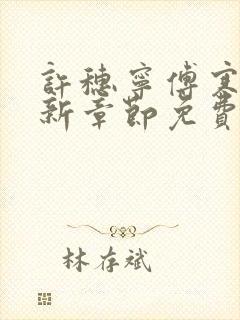 許穗寧傅寒
新章節免費
林存斌